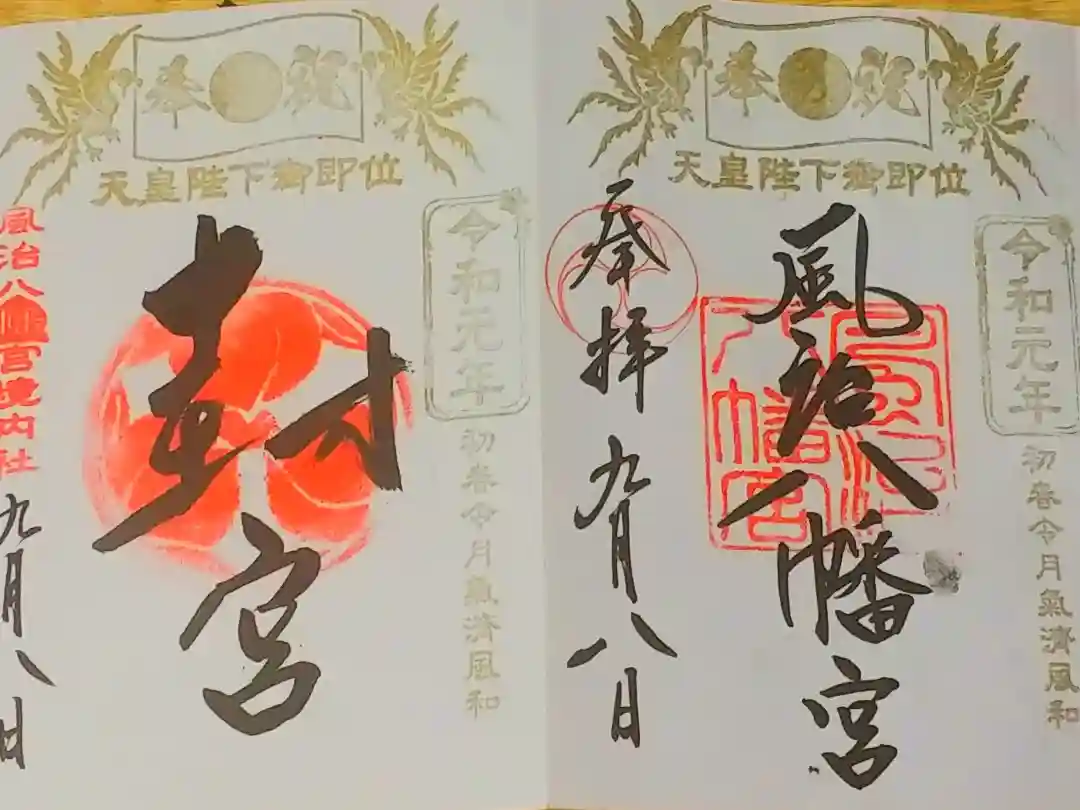 奉祝
天皇陛下御即位
令和元年
初春令月氣淑風和
風治八幡宮
風治
八幡宮
奉拝 九月八日
奉祝
天皇陛下御即位
令和元年
初春令月氣淑風和
封宮
風治八幡宮境内社
九月八日